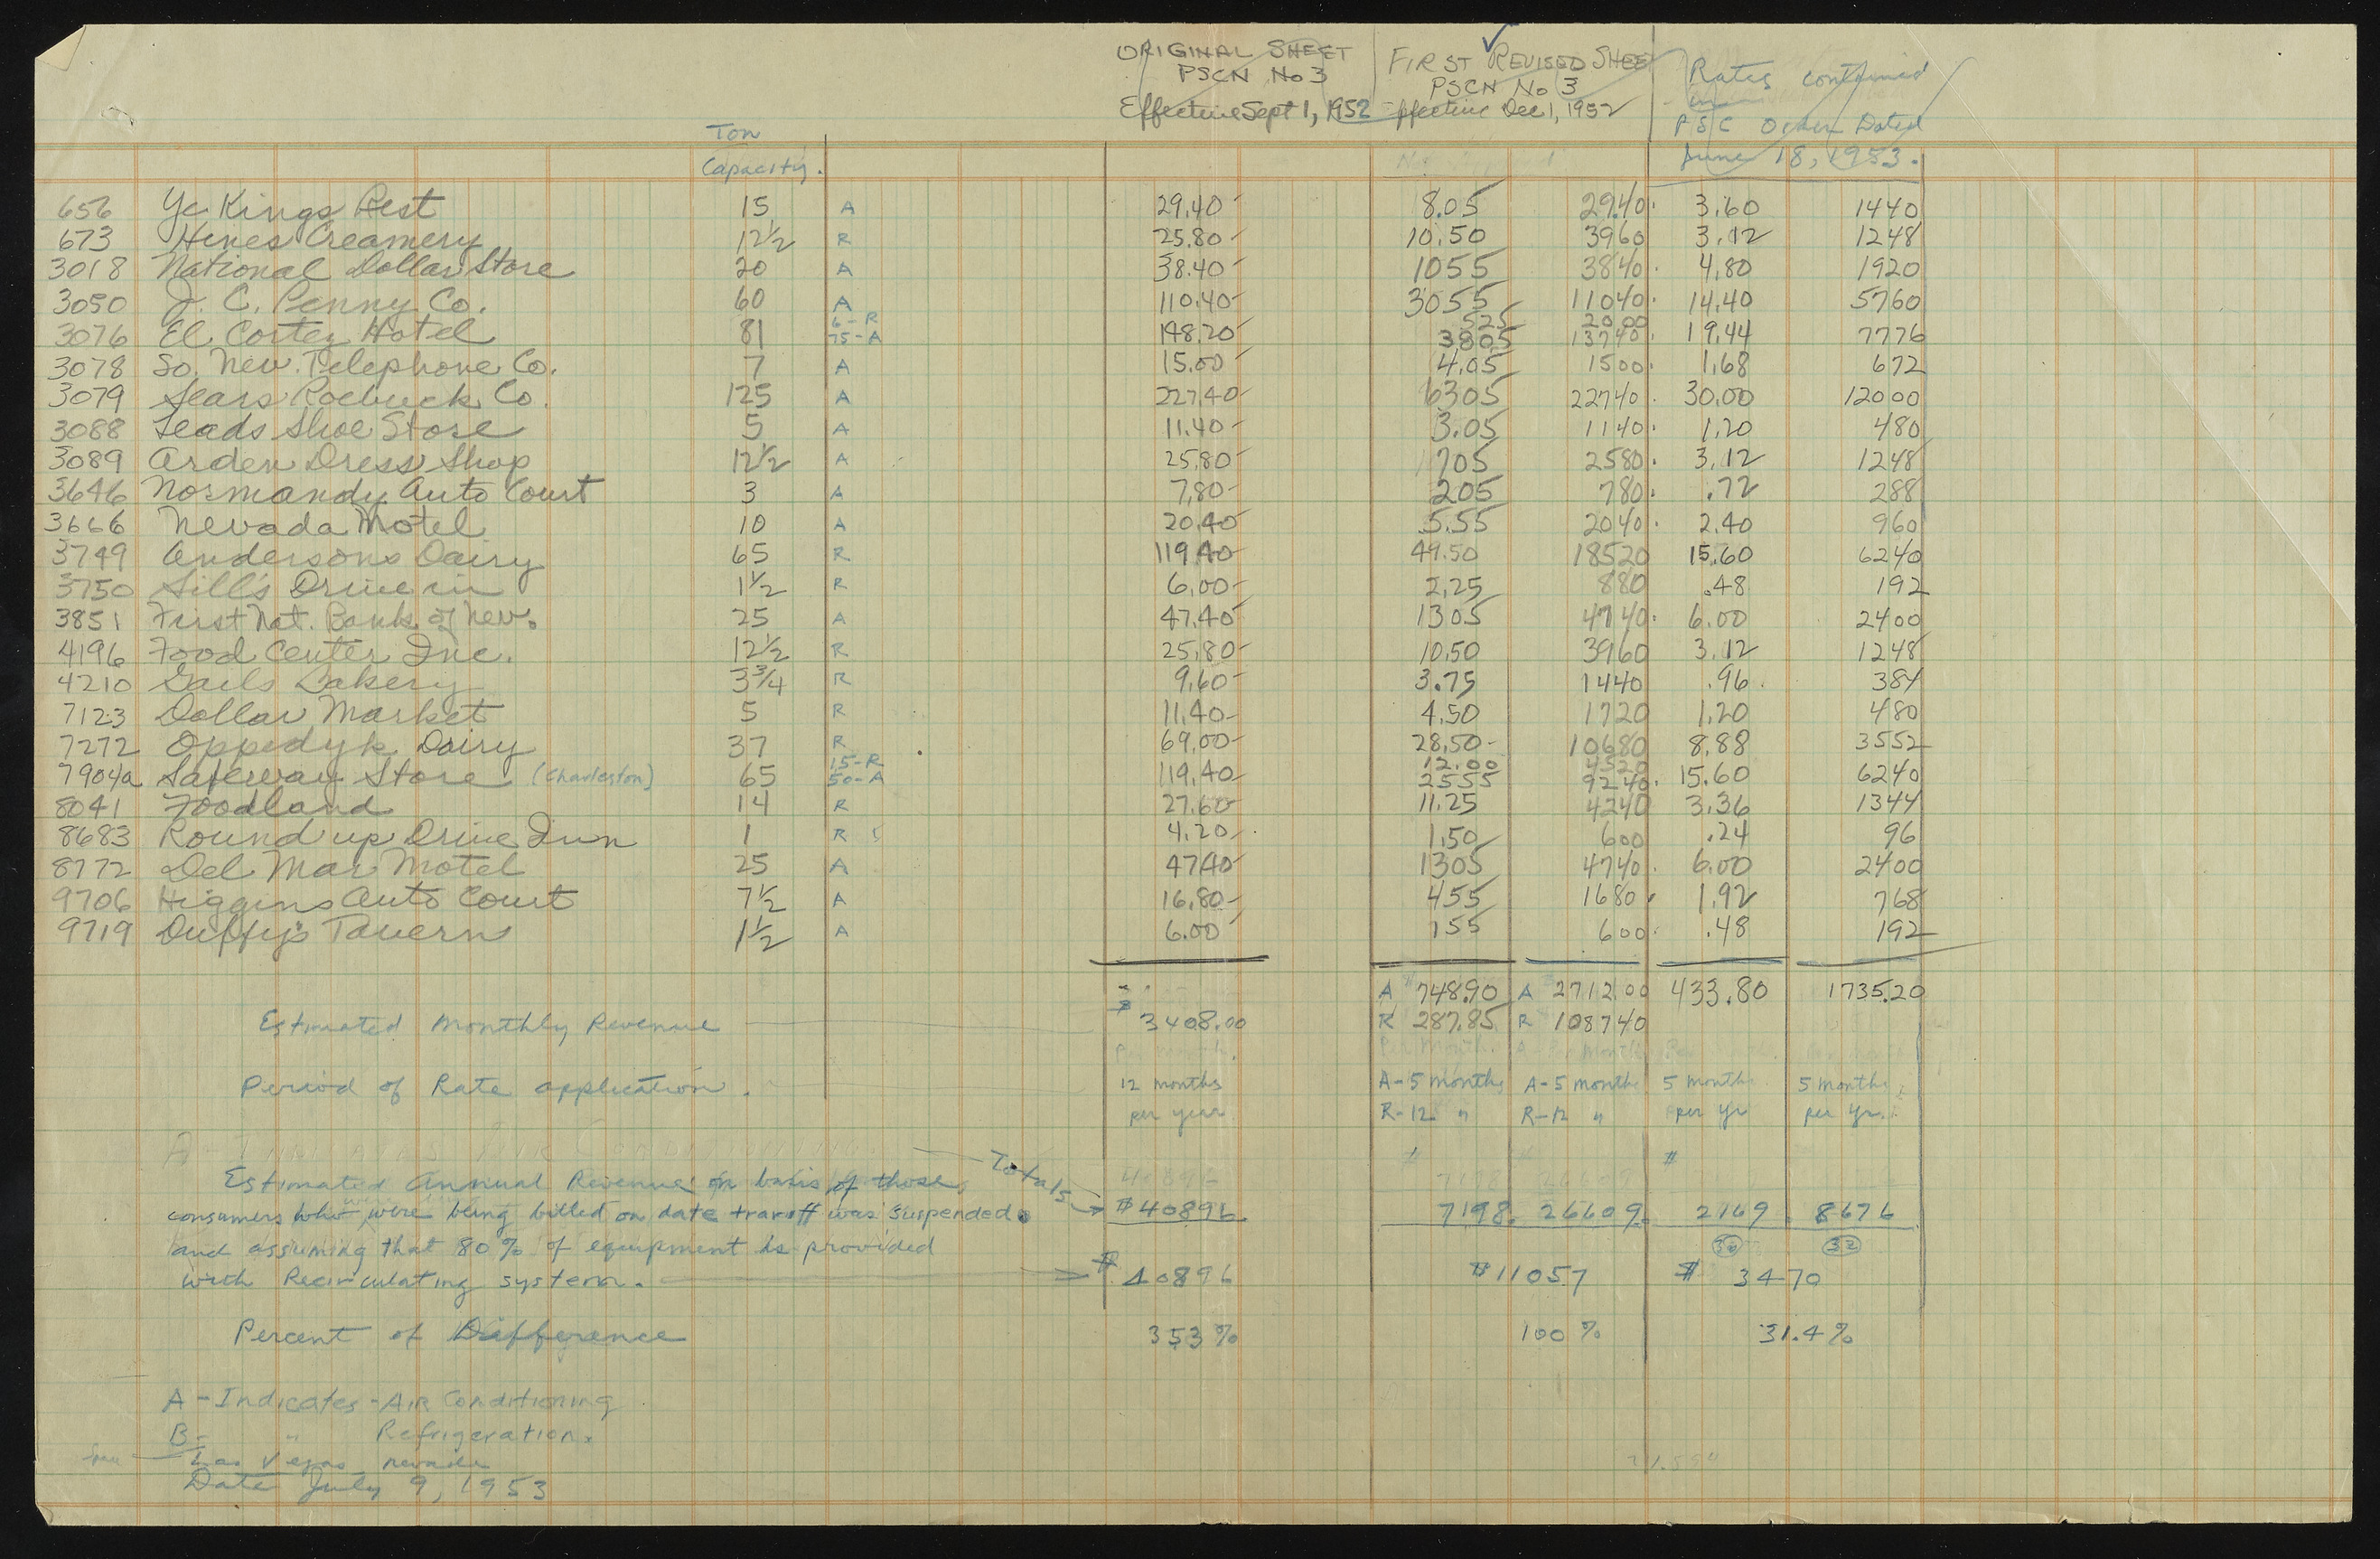 ORIGINAL SHEET FIRST REVISED SHEE Rates contained
PSCN No 3 PSCN No 3 in
Effective Sept 1, 1952 Effective Dec 1, 1952 PSC Order Dated
Ton June 18, 1953.
Capacity.
656 Ye Kings Rest 15 A 29.40 8.05 29.40 3.60 1440
673 Hines Creamery 12½ R 25.80 10.50 3960 3.12 1248
3018 National Dollar Store 20 A 38.40 1055 3840 4.80 1920
3050 J. C. Penny Co. 60 A 110.40 3055 11040 14.40 5760
6-R 525 2000
3076 El Cortez Hotel 81 75-A 148.20 3805 13740 19.44 7776
3078 So. Nev. Telephone Co. 7 A 15.00 4.05 1500 1.68 672
3079 Sears Roebuck Co. 125 A 227.40 6305 22740 30.00 12000
3088 Leads Shoe Store 5 A 11.40 3.05 1140 1.20 480
3089 Arden Dress Shop 12½ A 25.80 705 2580 3.12 1248
3646 Normandy Auto Court 3 A 7.80 205 780 .72 288
3666 Nevada Motel 10 A 20.40 5.55 2040 2.40 960
3749 Andersons Dairy 65 R 119.40 49.50 18520 15.60 6240
3750 Sill's Drive in 1½ R 6.00 2.25 880 .48 192
3851 First Nat. Bank of Nev. 25 A 47.40 1305 4740 6.00 2400
4196 Food Center Inc. 12½ R 25.80 10.50 3960 3.12 1248
4210 Gails Bakery 3¾ R 9.60 3.75 1440 .96 384
7123 Dollar Market 5 R 11.40 4.50 1720 1.20 480
7272 Oppedyk Dairy 37 R 69.00 28.50 10680 8.88 3552
15-R 12.00 4520
7904a Safeway Store (Charleston) 65 50-A 119.40 2555 9240 15.60 6240
8041 Foodland 14 R 27.60 11.25 4240 3.36 1344
8683 Round up Drive Inn 1 R 4.20 1.50 600 .24 96
8772 Del Mar Motel 25 A 47.40 1305 4740 6.00 2400
9706 Higgins Auto Court 7½ A 16.80 455 1680 1.92 768
9719 Duffy's Tavern 1½ A 6.00 155 600 .48 192
A 748.90 A 2712.00 433.80 1735.20
Estimated Monthly Revenue $3408.00 R 287.85 R 108740
Per month. Per Month. A-Per Month
Period of Rate application. 12 months A-5 months A-5 months 5 months 5 months
per year R-12 " R-12 " per yr per yr.
A-INDICATES AIR CONDITIONING
Totals
Estimated Annual Revenue on basis of those
consumers who were being billed on date tarriff was suspended $40896. 7198. 26609. 2169. 8676
and assuming that 80% of equipment is provided 32
with Recirculating system. $40896 $11057 $3470
Percent of Difference 353% 100% 31.4%
A-Indicates-Air Conditioning
B- " Refrigeration.
Las Vegas Nevada
Date July 9, 1953